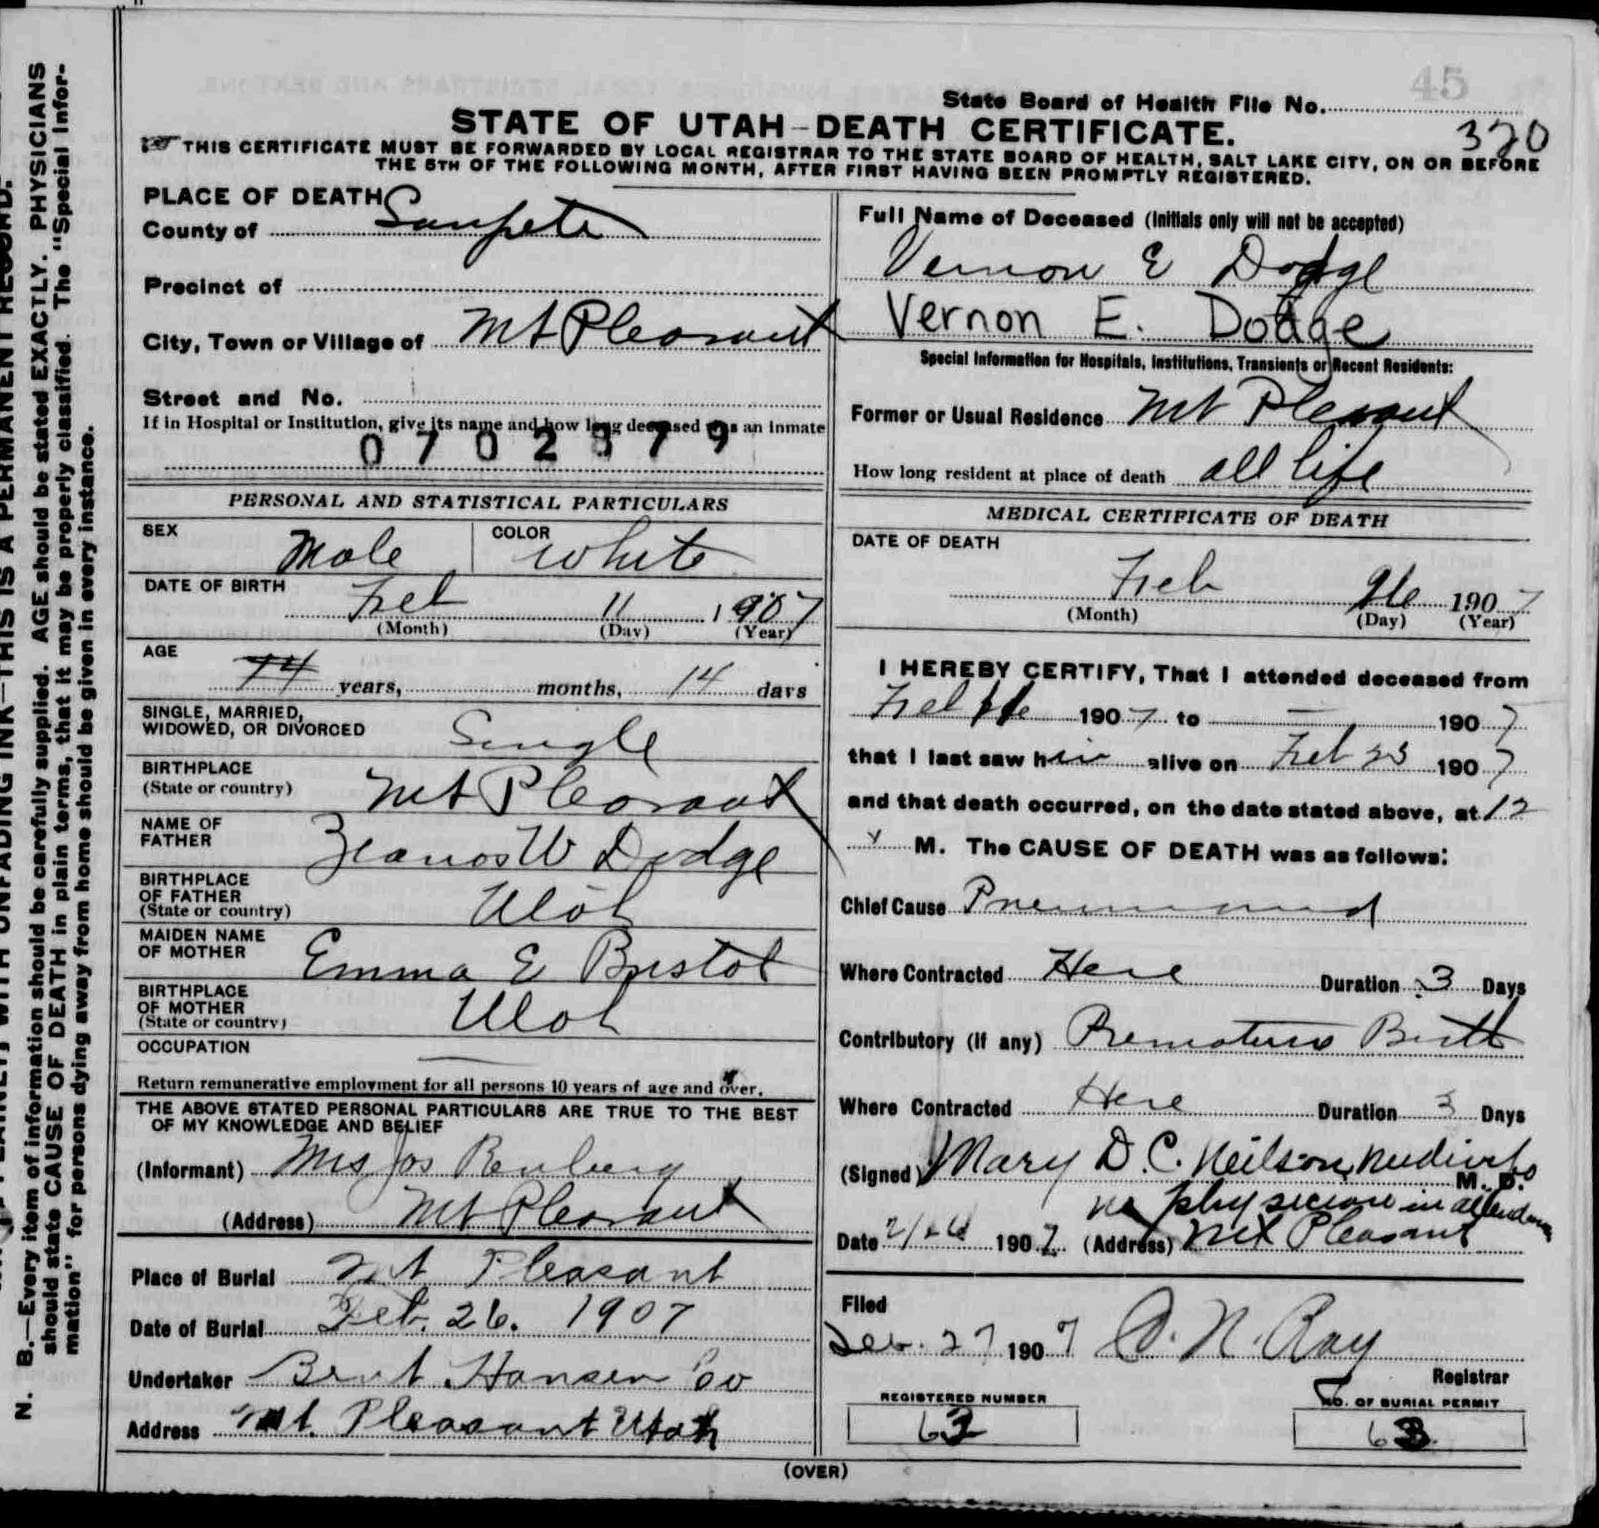 45
State Board of Health File No.
STATE OF UTAH-DEATH CERTIFICATE.
320
THIS CERTIFICATE MUST BE FORWARDED BY LOCAL REGISTRAR TO THE STATE BOARD OF HEALTH, SALT LAKE CITY, ON OR BEFORE
THE 5TH OF THE FOLLOWING MONTH, AFTER FIRST HAVING BEEN PROMPTLY REGISTERED.
PLACE OF DEATH
County of Sanpete
Precinct of
City, Town or Village of Mt Pleasant
Street and No.
If in Hospital or Institution, give its name and how long deceased was an inmate
0702379
PERSONAL AND STATISTICAL PARTICULARS
SEX Male COLOR White
DATE OF BIRTH Feb 11 1907
(Month) (Day) (Year)
AGE
14 years, months, 14 days
SINGLE, MARRIED,
WIDOWED, OR DIVORCED Single
BIRTHPLACE
(State or country) Mt Pleasant
NAME OF
FATHER W Dodge
BIRTHPLACE
OF FATHER
(State or country) Utah
MAIDEN NAME
OF MOTHER Emma E Bristol
BIRTHPLACE
OF MOTHER
(State or country) Utah
OCCUPATION
Return remunerative employment for all persons 10 years of age and over.
THE ABOVE STATED PERSONAL PARTICULARS ARE TRUE TO THE BEST
OF MY KNOWLEDGE AND BELIEF
(Informant) Mrs Jos
(Address) Mt Pleasant
Place of Burial Mt Pleasant
Date of Burial Feb. 26. 1907
Undertaker Hansen Co
Address Mt. Pleasant Utah
Full Name of Deceased (Initials only will not be accepted)
Vernon E Dodge
Vernon E. Dodge
Special Information for Hospitals, Institutions, Transients or Recent Residents:
Former or Usual Residence Mt Pleasant
How long resident at place of death all life
MEDICAL CERTIFICATE OF DEATH
DATE OF DEATH
Feb 26 1907
(Month) (Day) (Year)
I HEREBY CERTIFY, That I attended deceased from
Feb 1907 to — 1907
that I last saw him alive on Feb 23 1907
and that death occurred, on the date stated above, at 12
M. The CAUSE OF DEATH was as follows:
Chief Cause Pneumonia
Where Contracted Here Duration 3 Days
Contributory (if any) Premature Birth
Where Contracted Here Duration 3 Days
(Signed) Mary D. C. Neilson, M. D.
no physician in attendance
Date 2/26 1907 (Address) Mt Pleasant
Filed
Feb. 27 1907 O. N. Ray
Registrar
REGISTERED NUMBER
63
NO. OF BURIAL PERMIT
63
(OVER)
N. B.—Every item of information should be carefully supplied. AGE should be stated EXACTLY. PHYSICIANS
should state CAUSE OF DEATH in plain terms, that it may be properly classified. The "Special Infor-
mation" for persons dying away from home should be given in every instance.